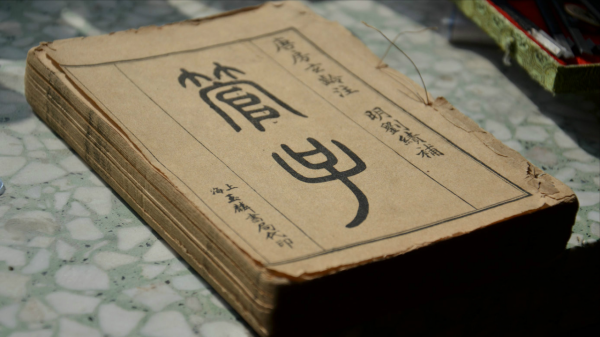 唐房玄齡注
明劉績補
管子
上海
書局代印